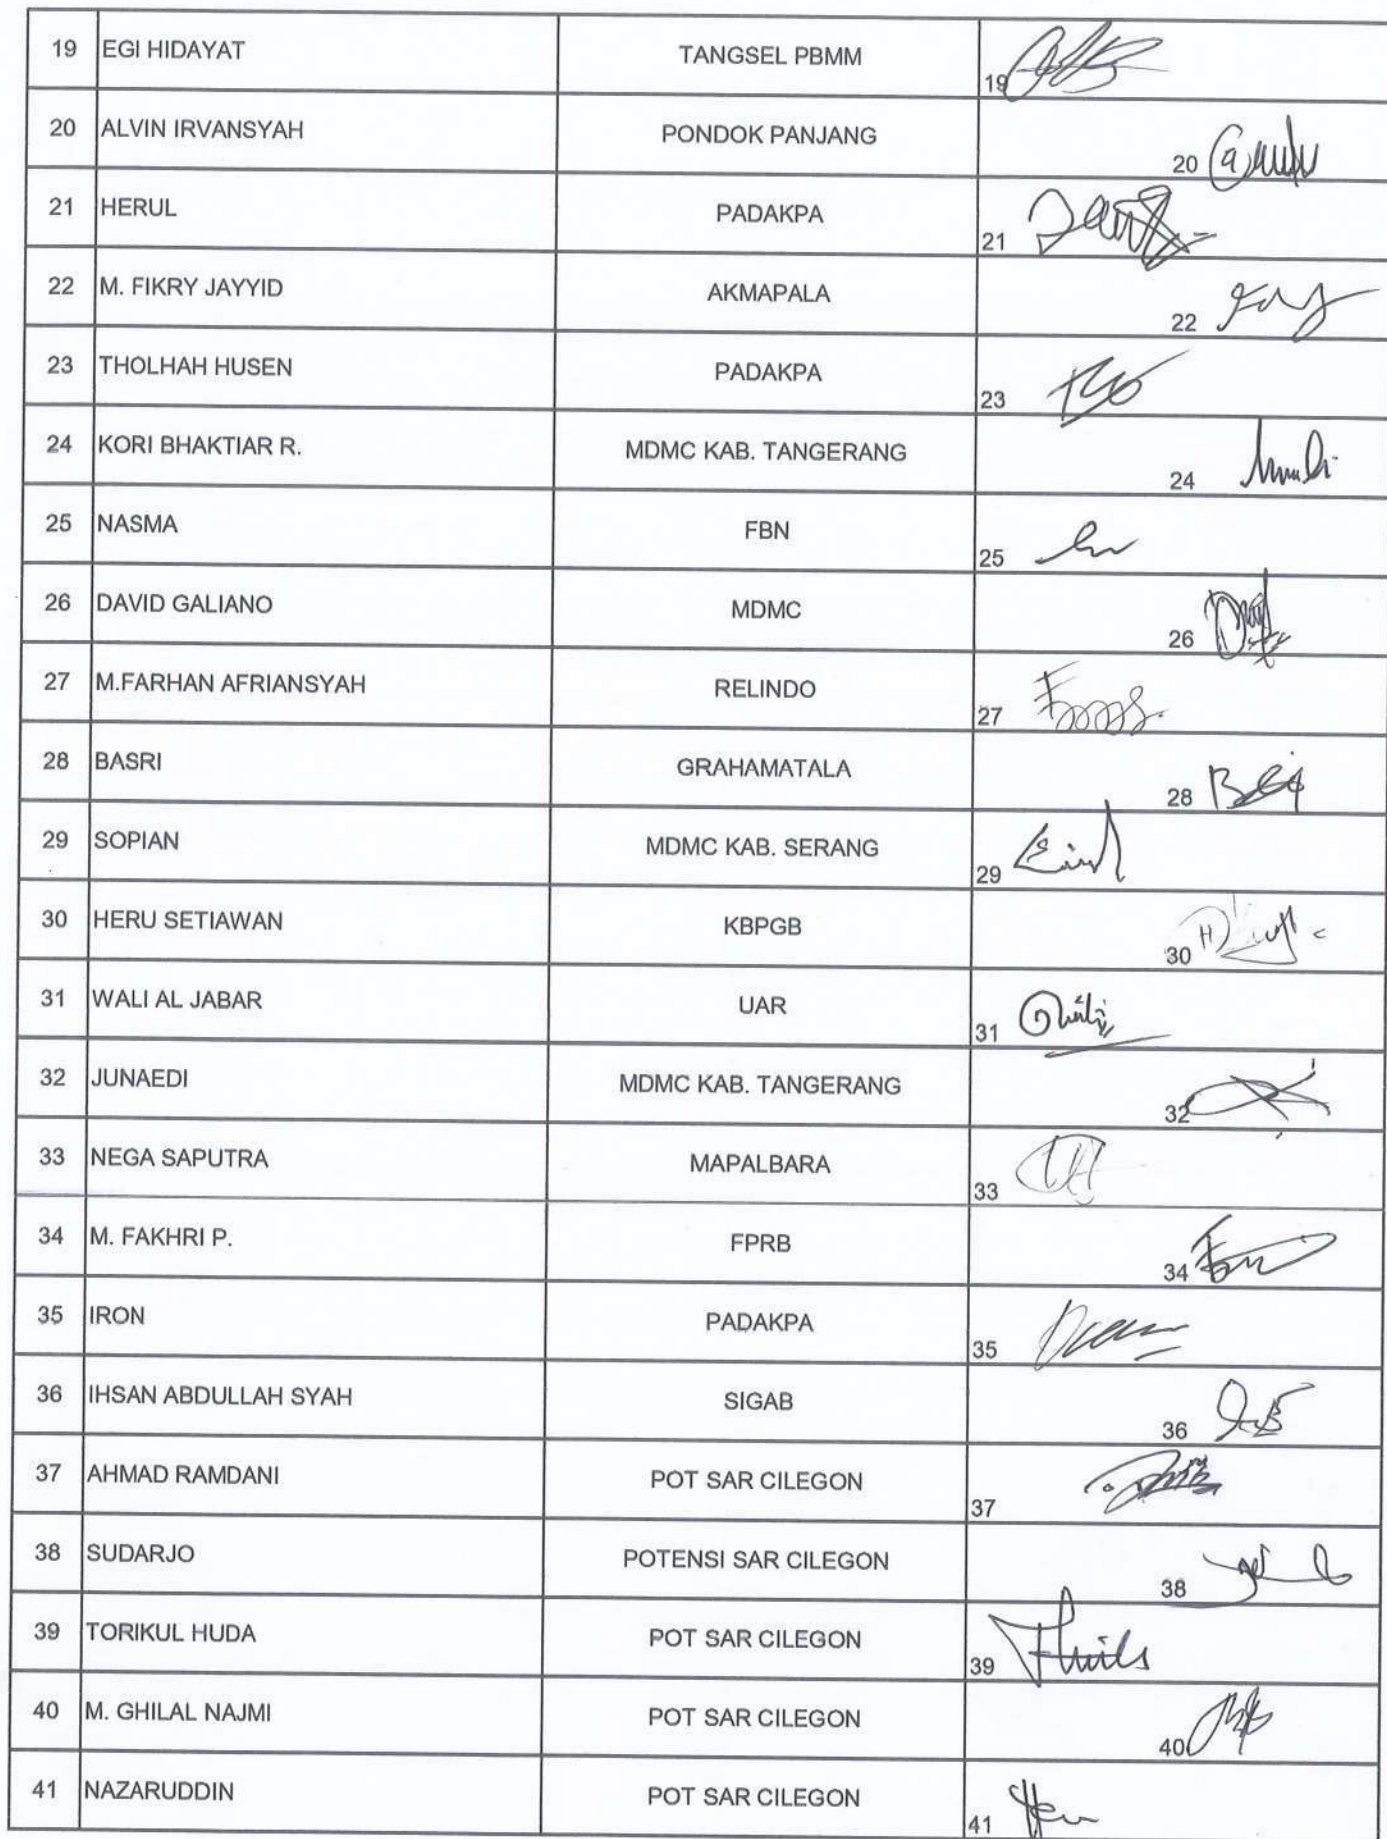 19 EGI HIDAYAT TANGSEL PBMM 19
20 ALVIN IRVANSYAH PONDOK PANJANG 20
21 HERUL PADAKPA 21
22 M. FIKRY JAYYID AKMAPALA 22
23 THOLHAH HUSEN PADAKPA 23
24 KORI BHAKTIAR R. MDMC KAB. TANGERANG 24
25 NASMA FBN 25
26 DAVID GALIANO MDMC 26
27 M.FARHAN AFRIANSYAH RELINDO 27
28 BASRI GRAHAMATALA 28
29 SOPIAN MDMC KAB. SERANG 29
30 HERU SETIAWAN KBPGB 30
31 WALI AL JABAR UAR 31
32 JUNAEDI MDMC KAB. TANGERANG 32
33 NEGA SAPUTRA MAPALBARA 33
34 M. FAKHRI P. FPRB 34
35 IRON PADAKPA 35
36 IHSAN ABDULLAH SYAH SIGAB 36
37 AHMAD RAMDANI POT SAR CILEGON 37
38 SUDARJO POTENSI SAR CILEGON 38
39 TORIKUL HUDA POT SAR CILEGON 39
40 M. GHILAL NAJMI POT SAR CILEGON 40
41 NAZARUDDIN POT SAR CILEGON 41